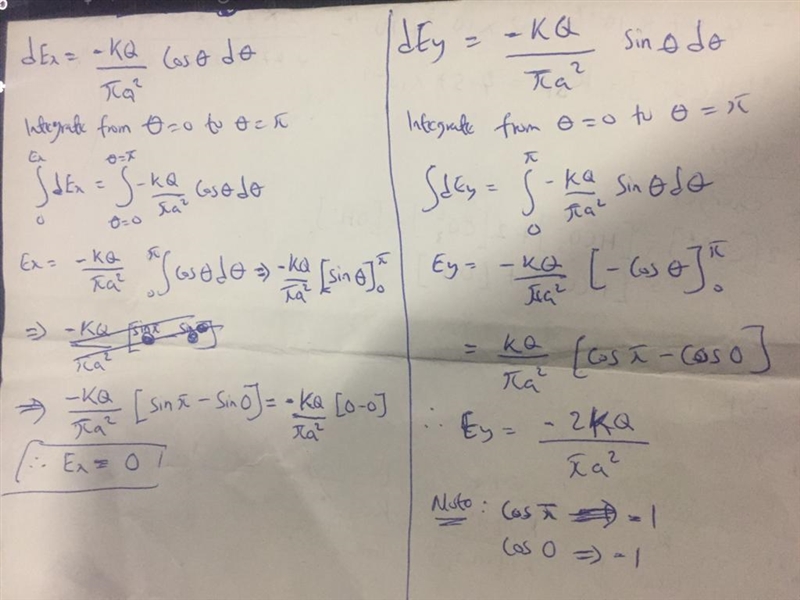 dEx = -KQ/πa² Cosθ dθ
Integrate from θ=0 to θ=π
∫₀^Ex dEx = ∫_θ=0^θ=π -KQ/πa² Cosθdθ
Ex = -KQ/πa² ₀∫^π Cosθdθ ⇒ -KQ/πa² [Sinθ]₀^π
⇒ -KQ/πa²
⇒ -KQ/πa² [Sinπ - Sin0] = -KQ/πa² [0-0]
∴ Ex = 0
dEy = -KQ/πa² Sinθdθ
Integrate from θ=0 to θ=π
∫dEy = ∫₀^π -KQ/πa² Sinθdθ
Ey = -KQ/πa² [-Cosθ]₀^π
= KQ/πa² [Cosπ - Cos0]
∴ Ey = -2KQ/πa²
Note: Cosπ ⇒ -1
Cos0 ⇒ 1